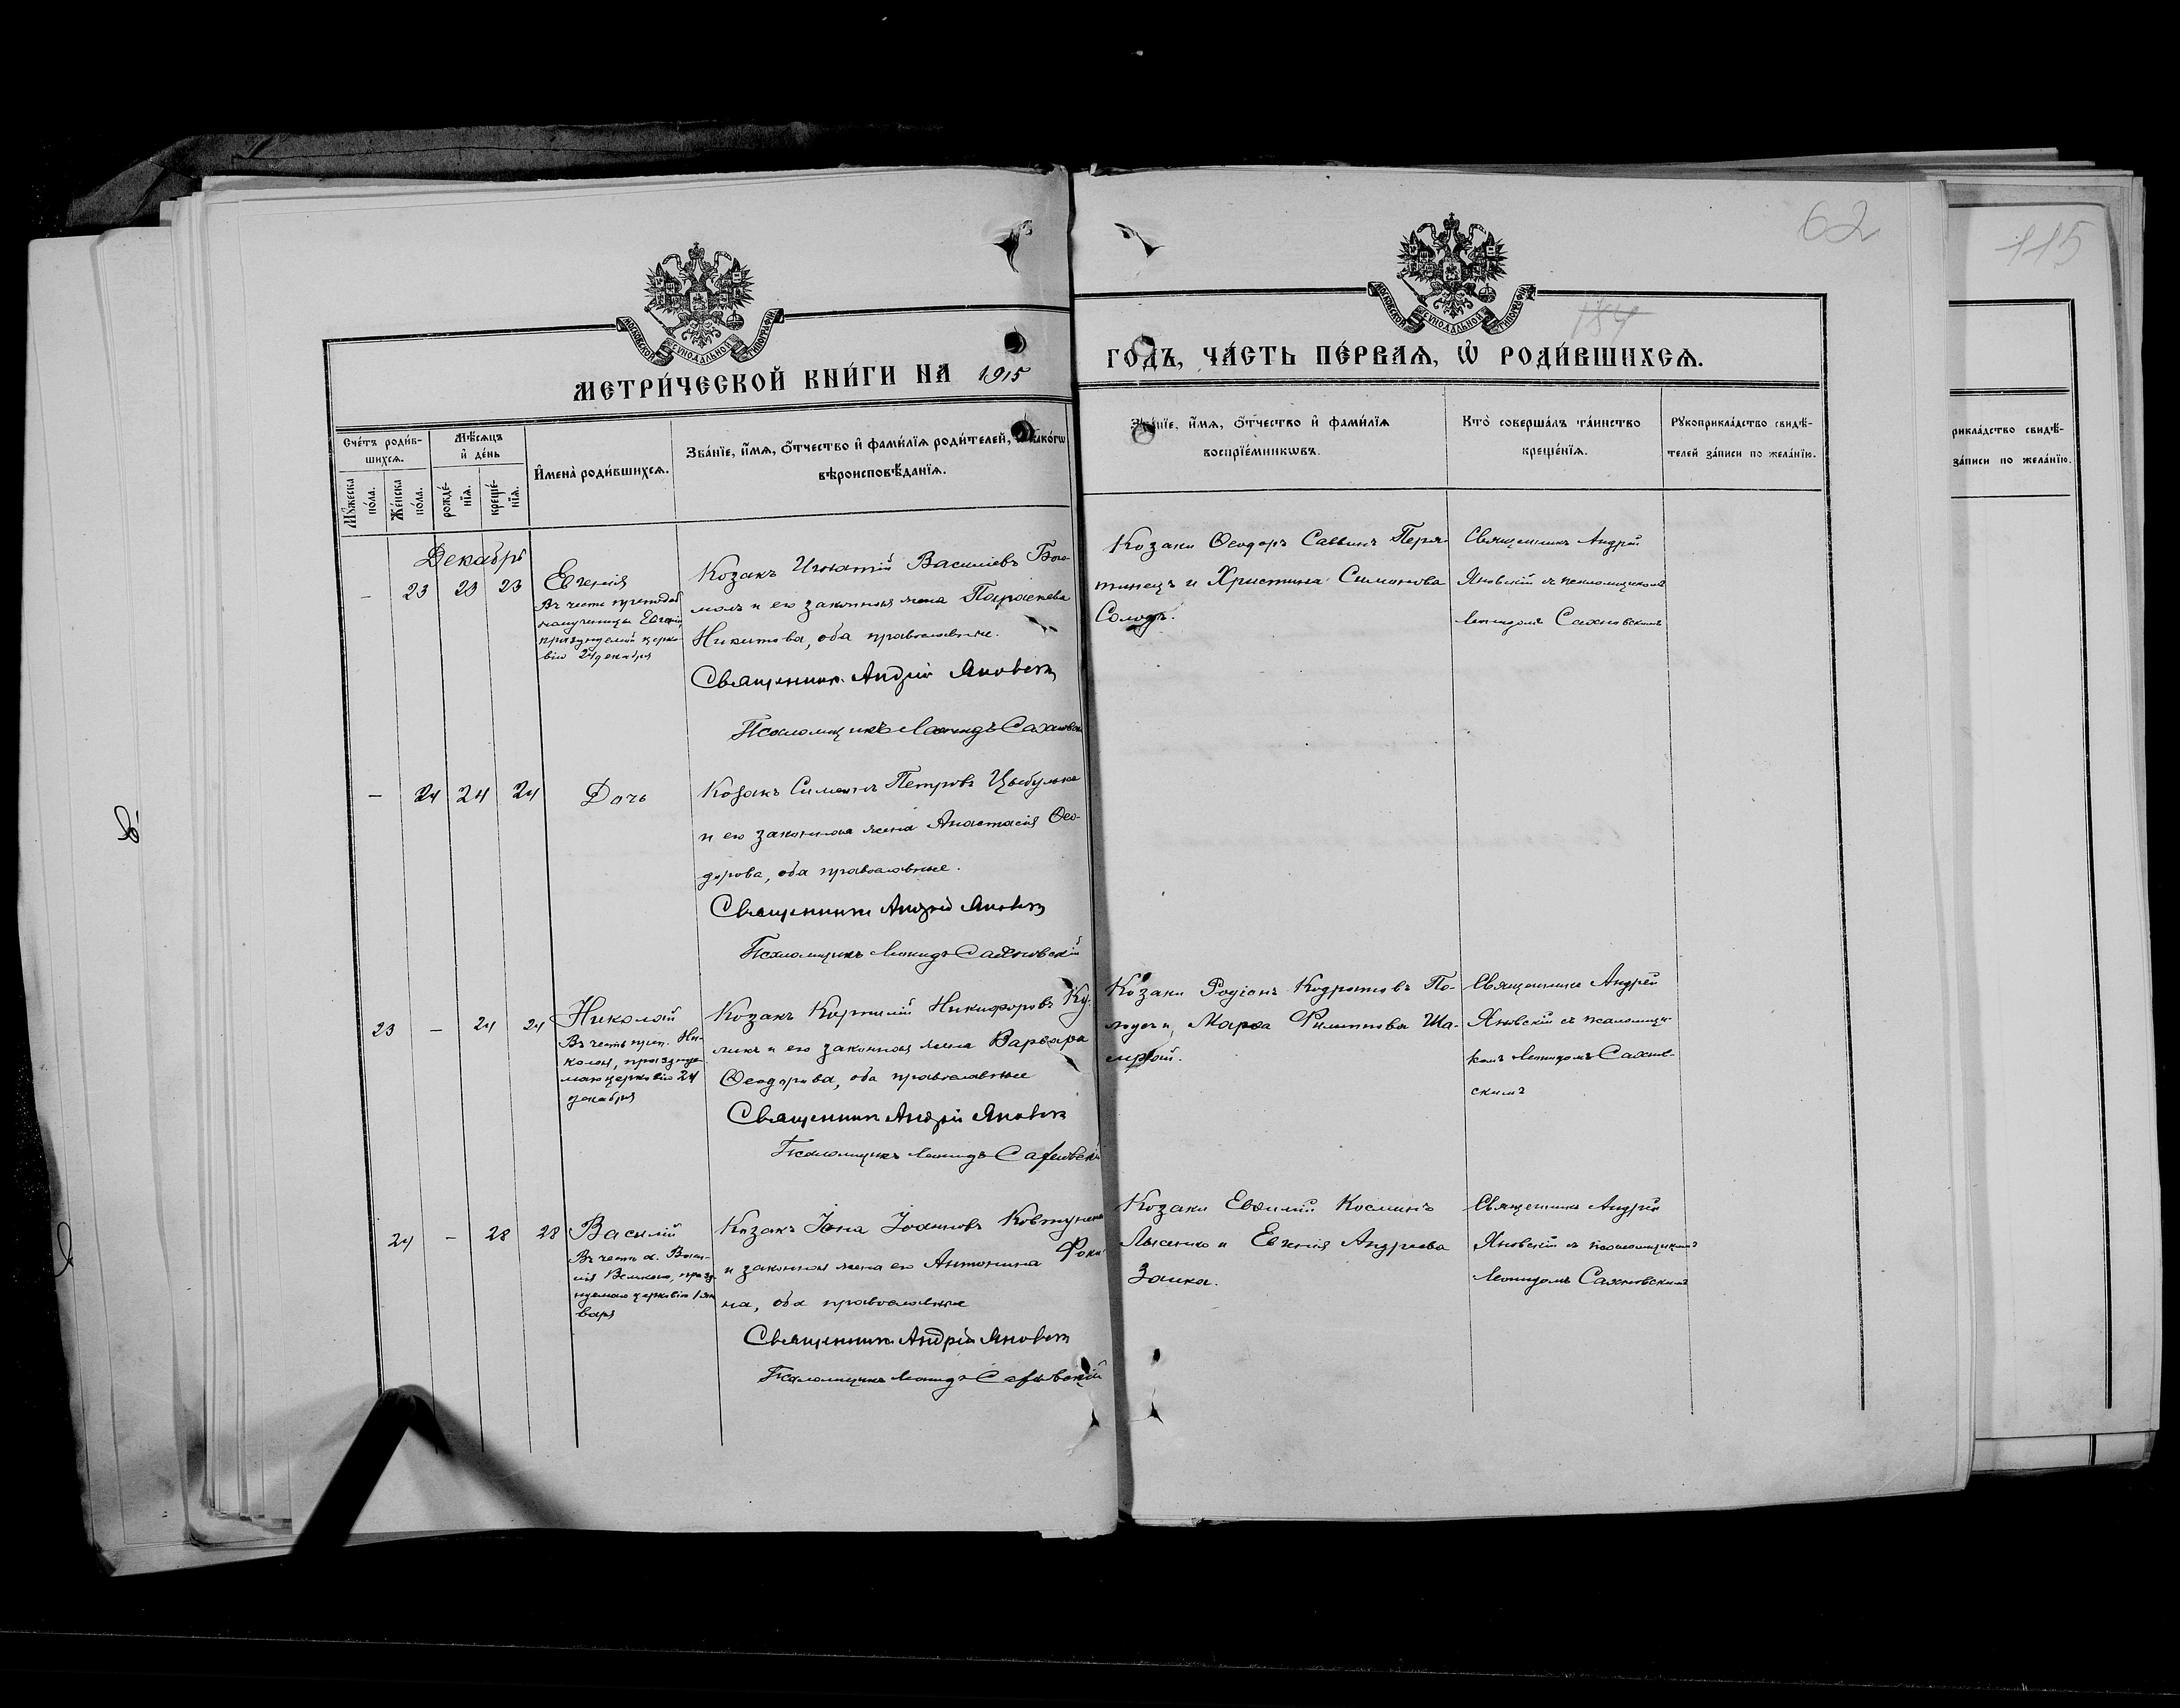 62
115
184
МОСКОВСКОЙ СѴНОДАЛЬНОЙ ТИПОГРАФІИ
МОСКОВСКОЙ СѴНОДАЛЬНОЙ ТИПОГРАФІИ
МЕТРИ́ЧЕСКОЙ КНИ́ГИ НА 1915
ГОДЪ, ЧА́СТЬ ПЕ́РВАѦ, Ѡ҆ РОДИ́ВШИХСѦ.
Сче́тъ роди́в-
шихсѧ.
Мѣ́сѧцъ
и҆ де́нь
Мꙋ́жеска
по́ла.
Же́нска
по́ла.
рожде́-
нїѧ.
креще́-
нїѧ.
И҆мена̀ роди́вшихсѧ.
Зва́нїе, и҆́мѧ, ѻ҆́тчество и҆ фами́лїѧ роди́телей,
вѣроисповѣ́данїѧ.
Зва́нїе, и҆́мѧ, ѻ҆́тчество и҆ фами́лїѧ
воспрїе́мникѡвъ.
Кто̀ соверша́лъ та́инство
креще́нїѧ.
Рꙋкоприкла́дство свидѣ́-
телей за́писи по жела́нїю.
рикла́дство свидѣ́-
за́писи по жела́нїю.
Декабрь
– 23 23 23
Евгенія
Въ честь преподоб
номученицы Евгеніи,
празднуемой церко-
вію 24 декабря
Козакъ Игнатій Василіевъ
и его законная жена Параскева
Никитова, оба православные.
Священникъ Андрій Яновскій
Псаломщикъ Леонидъ Сахновскій
Козаки Ѳеодоръ Саввинъ Перя-
тинецъ и Христина Симонова
Солодъ.
Священникъ Андрей
Яновскій съ псаломщикомъ
Леонидомъ Сахновскимъ
– 24 24 24
Дочь
Козакъ Симеонъ Петровъ Цыбулька
и его законная жена Анастасія Ѳео-
дорова, оба православные.
Священникъ Андрей Яновскій
Псаломщикъ Леонидъ Сахновскій
23 – 24 24
Николай
Въ честь преп. Ни-
колая, празднуе-
маго церковію 24
декабря
Козакъ Корнилій Никифоровъ Ку-
ликъ и его законная жена Варвара
Ѳеодорова, оба православные
Священникъ Андрій Яновскій
Псаломщикъ Леонидъ Сахновскій
Козаки Родіонъ Кодратовъ По-
Марѳа Филиппова Ша-
Священникъ Андрей
Яновскій съ псаломщи-
комъ Леонидомъ Сахнов-
скимъ
24 – 28 28
Василій
Въ честь св. Васи-
лія Великаго, празд-
нуемаго церковію 1 ян
варя
Козакъ Іона Іоанновъ Ковтунъ
и законная жена его Антонина Фоки-
на, оба православные
Священникъ Андрій Яновскій
Псаломщикъ Леонидъ Сахновскій
Козаки Евѳимій Косминъ
Лысенко и Евгенія Андреева
Заика.
Священникъ Андрей
Яновскій съ псаломщикомъ
Леонидомъ Сахновскимъ